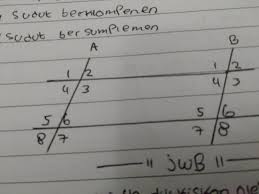 Sudut berkomplemen
Sudut bersuplemen
A B
1 2 1 2
4 3 4 3
5 6 5 6
8 7 7 8
" jwB "